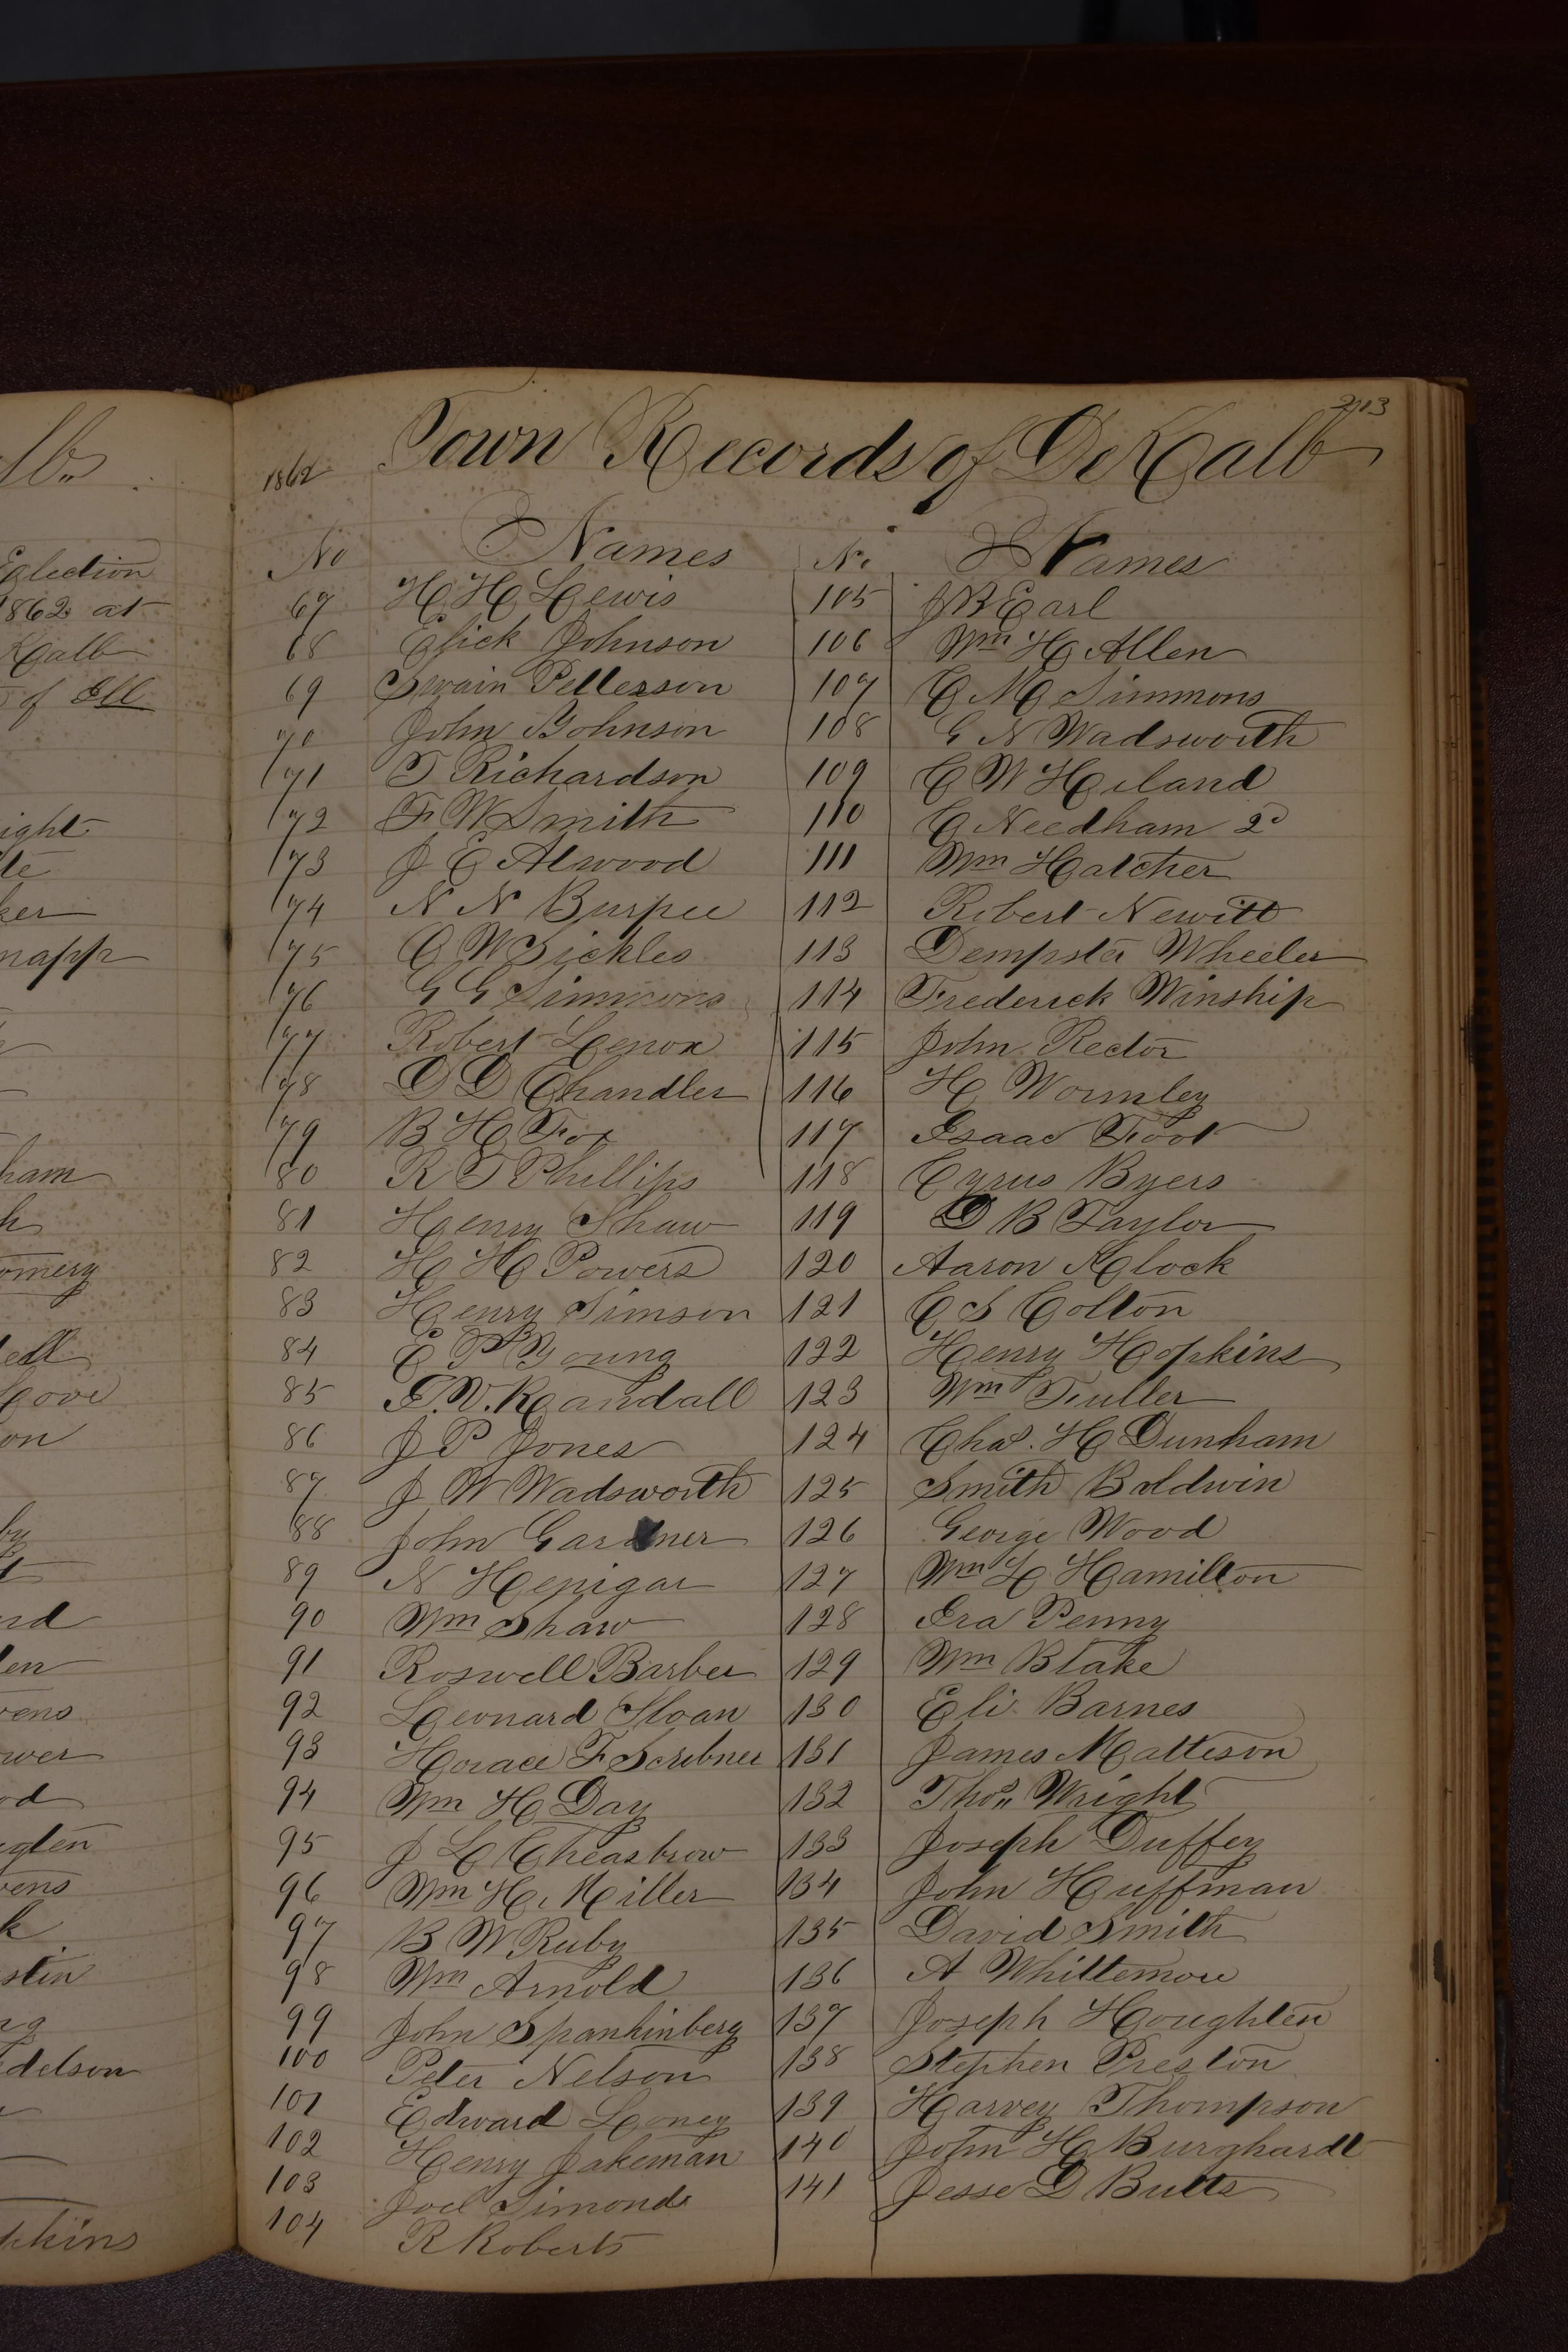 lb.
Eglection
1862 at
Kalb
of Ill
ight
te
ker
napp
ham
h
omery
dell
Gove
on
by
t
rd
len
vens
wer
od
ghten
vens
k
stin
ng
delson
pkins
213
1862 Town Records of DeKalb
No Names No Names
67 H H Lewis 105 J B Earl
68 Elick Johnson 106 Wm H Allen
69 Swain Petterson 107 C M Simmons
70 John Bohnson 108 G N Wadsworth
71 T Richardson 109 C W Heiland
72 F W Smith 110 C Needham 2d
73 J E Atwood 111 Wm Hatcher
74 N N Burpee 112 Robert Newitt
75 O W Sickles 113 Dempster Wheeler
76 G G Simmons 114 Frederick Winship
77 Robert Lenox 115 John Rector
78 D D Chandler 116 H Wormley
79 B H Fox 117 Isaac Foot
80 R T Phillips 118 Cyrus Byers
81 Henry Shaw 119 D B Taylor
82 H H Powers 120 Aaron Klock
83 Henry Simson 121 C S Colton
84 E P Young 122 Henry Hopkins
85 G. V. Randall 123 Wm Fuller
86 J P Jones 124 Chas. H Dunham
87 J W Wadsworth 125 Smith Baldwin
88 John Gardner 126 George Wood
89 N Henigar 127 Wm L Hamilton
90 Wm Shaw 128 Ira Penny
91 Roswell Barber 129 Wm Blake
92 Leonard Sloan 130 Eli Barnes
93 Horace F Scribner 131 James Matteson
94 Wm H Day 132 Thos Wright
95 J L Cheasbrow 133 Joseph Duffey
96 Wm H. Miller 134 John Huffman
97 B W Ruby 135 David Smith
98 Wm Arnold 136 A Whittemore
99 John Spankinberg 137 Joseph Houghten
100 Peter Nelson 138 Stephen Preston
101 Edward Loney 139 Harvey Thompson
102 Henry Jakeman 140 John H Burghardt
103 Joel Simonds 141 Jesse D Butts
104 R Roberts